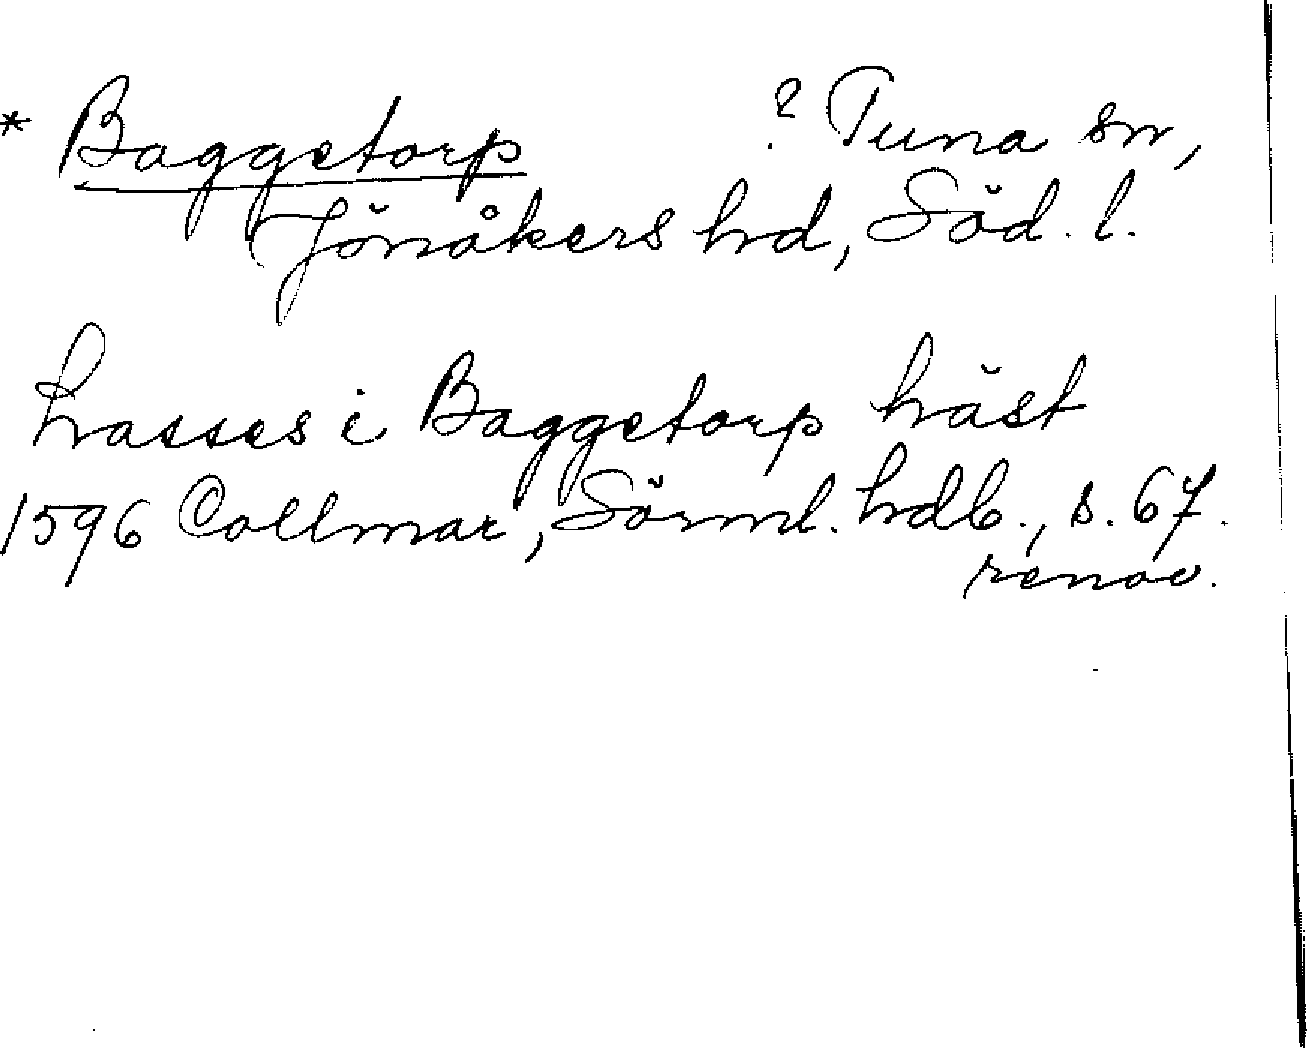 * Baggetorp ? Tuna sn,
Jönåkers hd, Söd. l.
Lasses i Baggetorp häst
1596 Collmar, Sörml. hdb., s. 67.
renov.